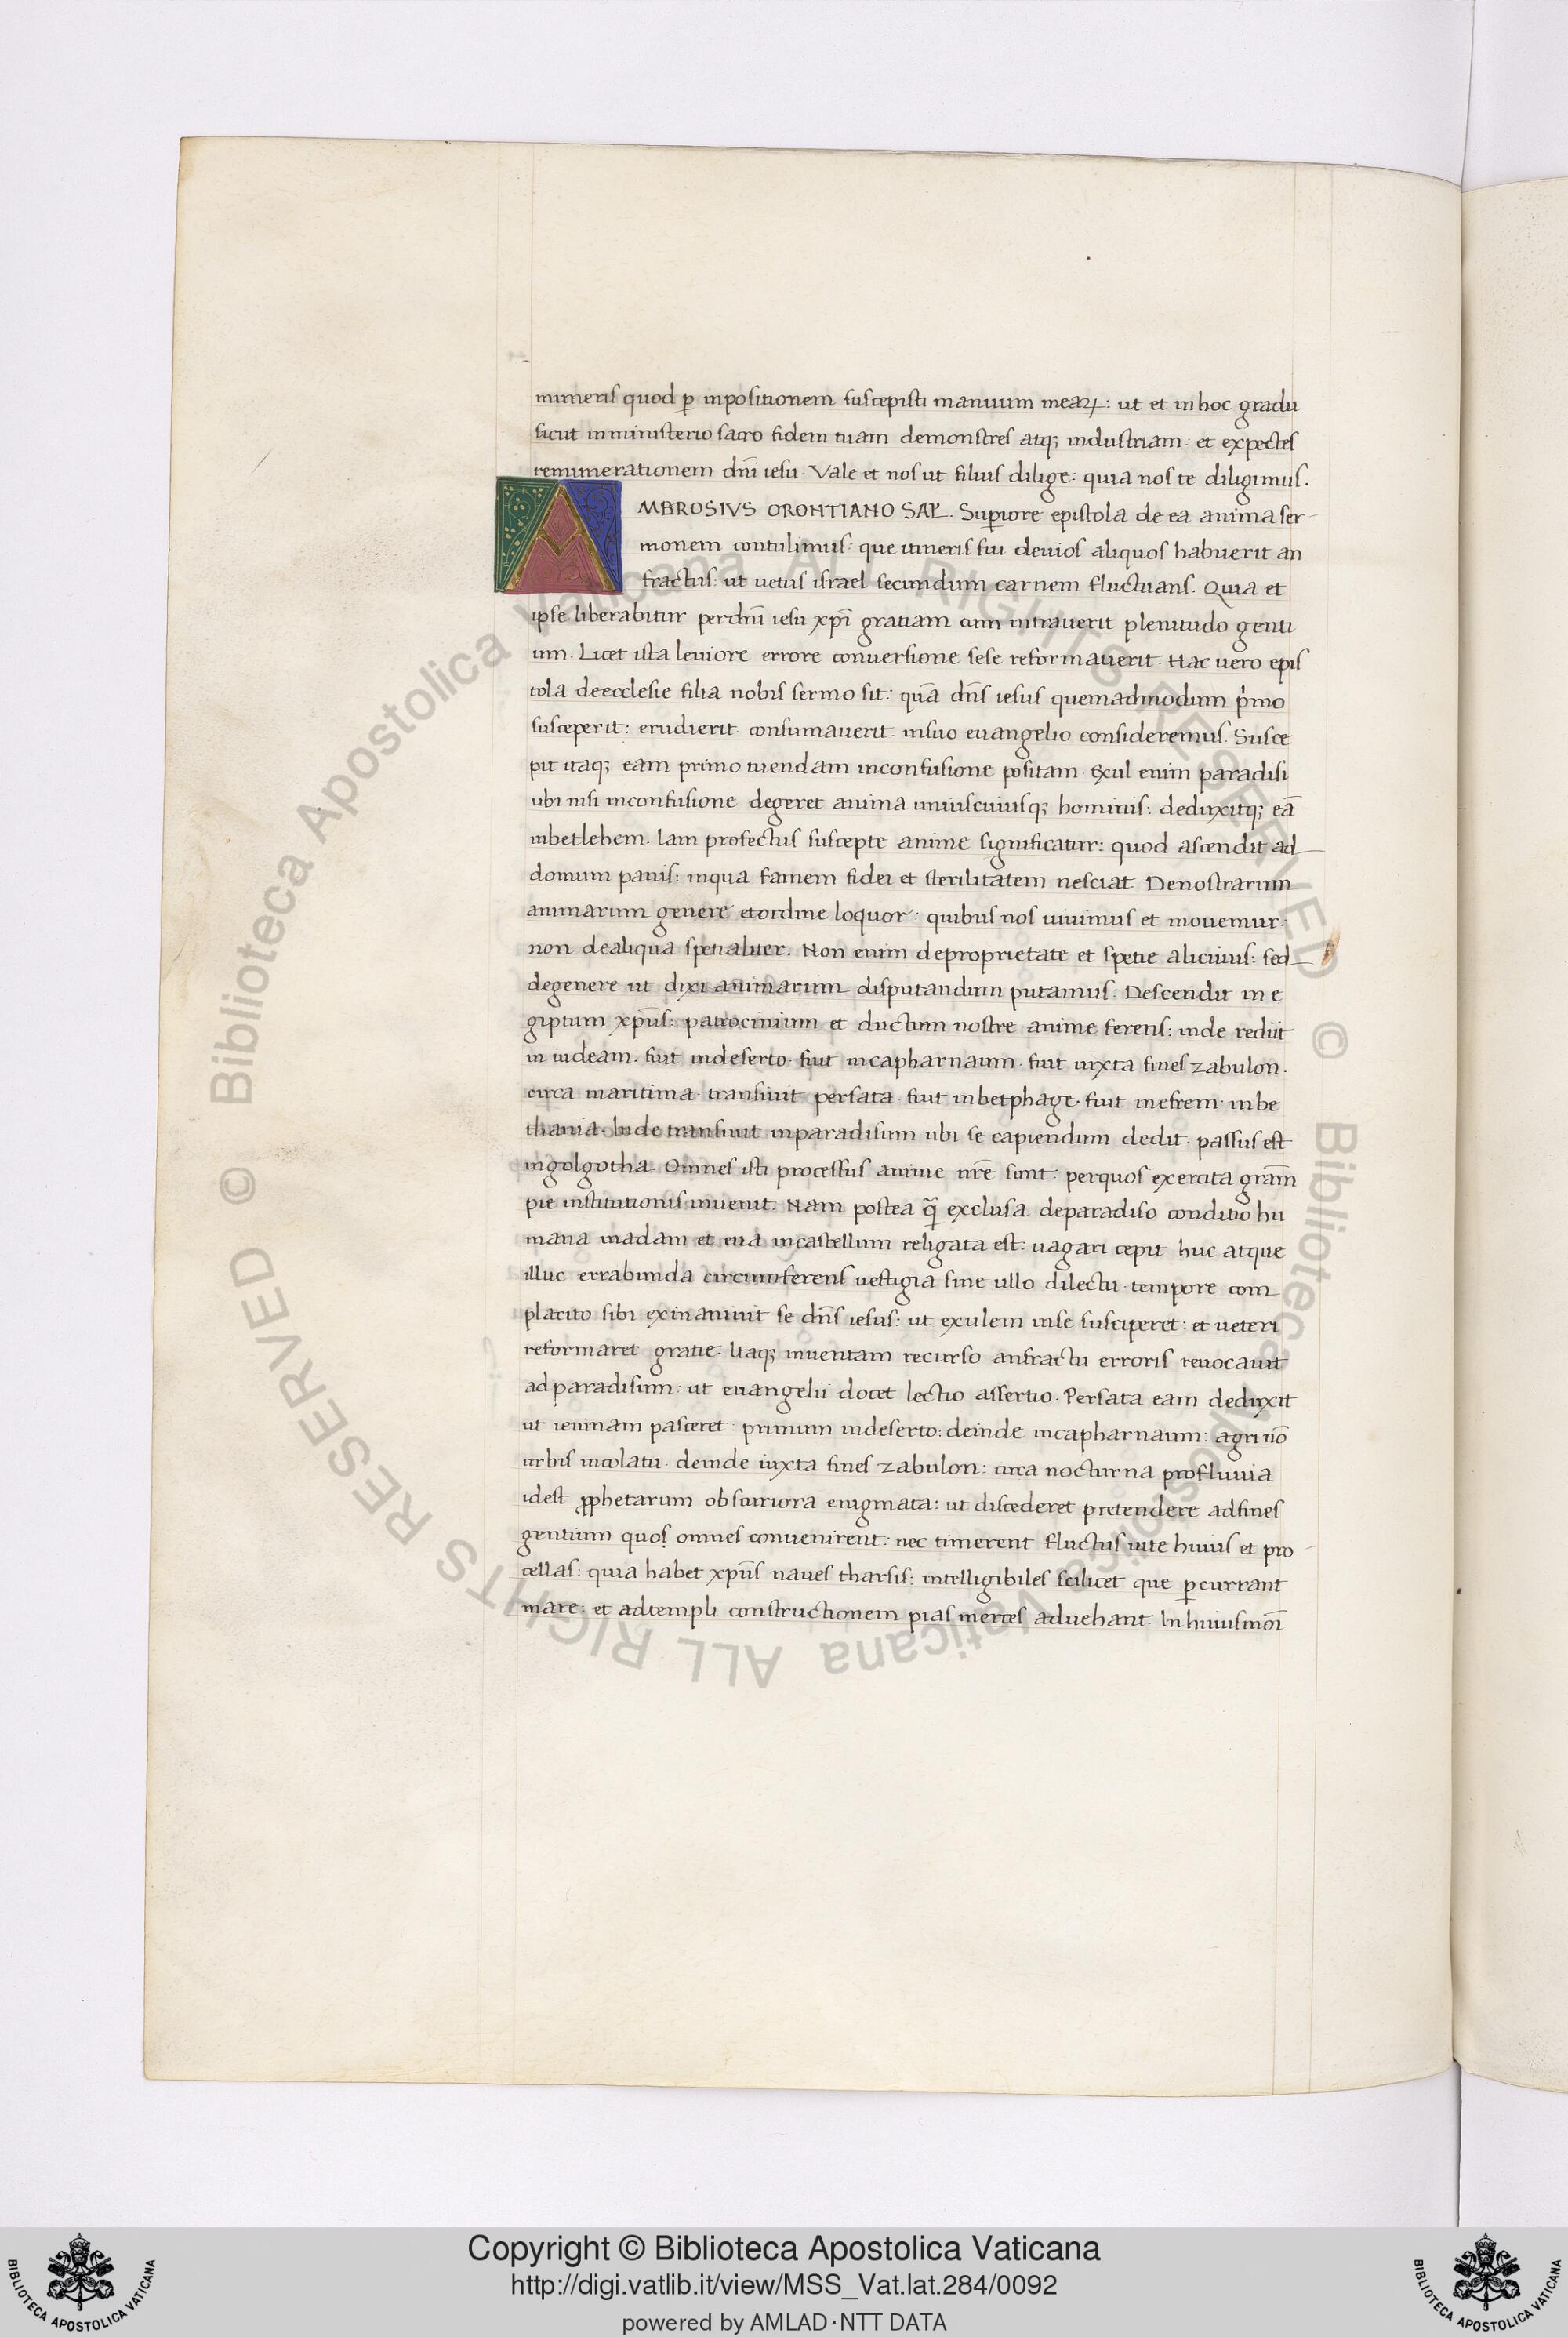 muneris quod ꝑ inpositionem suscepisti manuum meaꝝ: ut et inhoc gradu
sicut inministerio sacro fidem tuam demonstres atq; industriam: et expectes
remunerationem dn̄i iesu. Vale et nos ut filius dilige: quia nos te diligimus.
AMBROSIVS ORONTIANO SAL̄. Superiore epistola de ea anima ser-
monem contulimus: que itineris sui deuios aliquos habuerit an
fractus: ut uetus israel secundum carnem fluctuans. Quia et
ipse liberabitur perdn̄i iesu xp̄i gratiam cum intrauerit plenitudo genti
um. Licet ista leuiore errore conuersione sese reformauerit. Hac uero epis
tola deecclesie filia nobis sermo sit: quā dn̄s iesus quemadmodum p̍mo
susceperit: erudierit. consumauerit. insuo euangelio consideremus. Susce
pit itaq; eam primo tuendam inconfusione positam. Exul enim paradisi
ubi nisi inconfusione degeret anima uniuscuiusq; hominis: deduxitq; eā
inbetlehem. Iam profectus suscepte anime significatur: quod ascendit ad
domum panis: inqua famem fidei et sterilitatem nesciat. Denostrarum
animarum genere etordine loquor: quibus nos uiuimus et mouemur:
non dealiqua spetialiter. Non enim deproprietate et spetie alicuius: sed
degenere ut dixi animarum disputandum putamus: Descendit in e
giptum xp̄us: patrocinium et ductum nostre anime ferens: inde rediit
in iudeam. fuit indeserto. fuit incapharnaum. fuit iuxta fines zabulon.
circa maritima. transiuit persata. fuit inbetphage. fuit inefrem. inbe
thania. Inde transiuit inparadisum ubi se capiendum dedit. passus est
ingolgotha. Omnes isti processus anime nr̄e sunt: perquos exercita grām
pie institutionis inuenit. Nam postea q̃ exclusa deparadiso conditio hu
mana inadam et eua incastellum religata est: uagari cepit huc atque
illuc errabunda circumferens uestigia sine ullo dilectu. tempore com
placito sibi exinaniuit se dn̄s iesus: ut exulem inse susciperet: et ueteri
reformaret gratie. Itaq; inuentam recurso anfractu erroris reuocauit
ad paradisum: ut euangelii docet lectio assertio. Persata eam deduxit
ut ieiunam pasceret: primum indeserto: deinde incapharnaum: agri nō
urbis incolatu. deinde iuxta fines zabulon: circa nocturna profluuia
idest ꝓphetarum obscuriora enigmata: ut discederet pretendere adfines
gentium quos omnes conuenirent: nec timerent fluctus uite huius et pro-
cellas: quia habet xp̄us naues tharsis: intelligibiles scilicet que ꝑcurrant
mare: et adtempli constructionem pias merces aduehant. In huiusmōi
© Biblioteca Apostolica Vaticana ALL RIGHTS RESERVED © Biblioteca Apostolica Vaticana ALL RIGHTS RESERVED
Copyright © Biblioteca Apostolica Vaticana
http://digi.vatlib.it/view/MSS_Vat.lat.284/0092
powered by AMLAD·NTT DATA
BIBLIOTECA APOSTOLICA VATICANA
BIBLIOTECA APOSTOLICA VATICANA